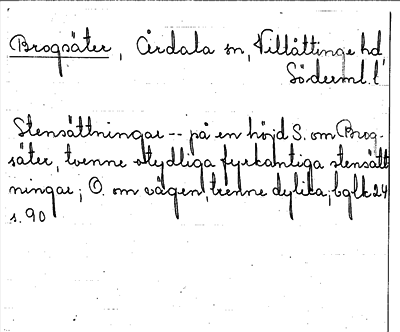 Brogsäter, Årdala sn, Villåttinge hd,
Söderml. l.
Stensättningar -- på en höjd S. om Brog-
säter, tvenne otydliga fyrkantiga stensätt
ningar; Ö. om vägen, trenne dylika; bglk 24
s. 90